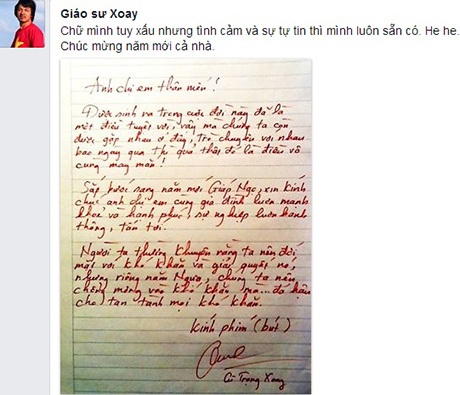 Giáo sư Xoay
Chữ mình tuy xấu nhưng tình cảm và sự tự tin thì mình luôn sẵn có. He he.
Chúc mừng năm mới cả nhà.
Anh chị em thân mến!
Được sinh ra trong cuộc đời này đã là
một điều tuyệt vời, vậy mà chúng ta còn
được gặp nhau ở đây, trò chuyện với nhau
bao ngày qua thì quả thật đó là điều vô
cùng may mắn!
Sắp bước sang năm mới Giáp Ngọ, xin kính
chúc anh chị em cùng gia đình luôn mạnh
khoẻ và hạnh phúc, sự nghiệp luôn hanh
thông, tấn tới.
Người ta thường khuyên rằng ta nên đối
mặt với khó khăn và giải quyết nó,
nhưng riêng năm Ngựa, chúng ta nên
chổng mông vào khó khăn mà... đá hậu
cho tan tành mọi khó khăn.
Kính phím (bút)
Cù Trọng Xoay